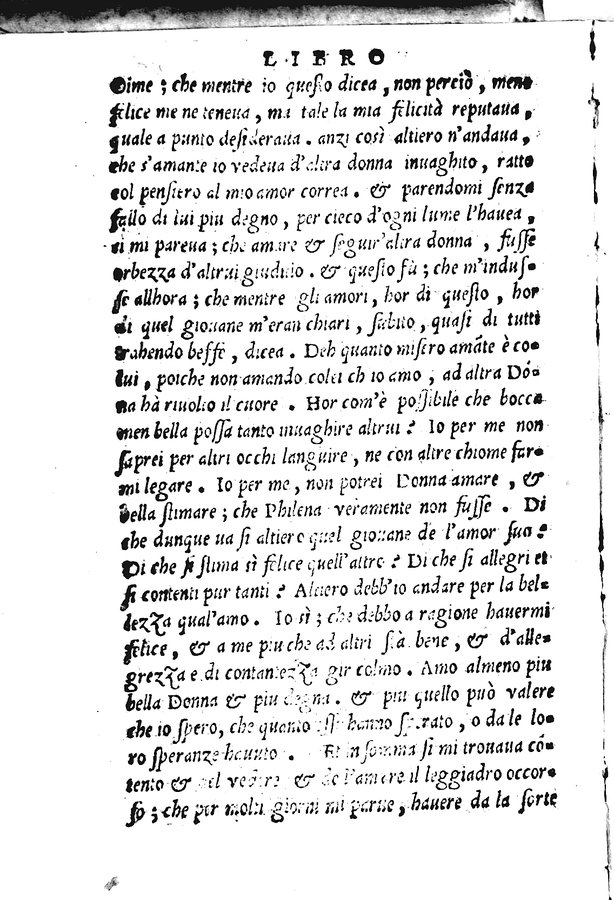 LIBRO
Oime ; che mentre io questo dicea , non perciò , meno
felice me ne teneua , ma tale la mia felicità reputaua ,
quale a punto desideraua . anzi così altiero n'andaua ,
che s'amante io vedeua d'altra donna inuaghito , ratto
col pensiero al mio amor correa . & parendomi senza
fallo di lui piu degno , per cieco d'ogni lume l'hauea ,
si mi pareua ; che amare & seguir'altra donna , fusse
orbezza d'altrui giuditio . & questo fù ; che m'indus-
se allhora ; che mentre gli amori , hor di questo , hor
di quel giouane m'eran chiari , subito , quasi di tutti
trahendo beffe , dicea . Deh quanto misero amãte è co-
lui , poiche non amando colei ch io amo , ad altra Dõ-
na hà riuolto il cuore . Hor com'è possibile che bocca
men bella possa tanto inuaghire altrui ? Io per me non
saprei per altri occhi languire , ne con altre chiome far-
mi legare . Io per me , non potrei Donna amare , &
bella stimare ; che Philena veramente non fusse . Di
che dunque ua si altiero quel giouane de l'amor suo ?
Di che si stima sì felice quell'altro ? Di che si allegri et
si contenti pur tanti ? Altiero debb'io andare per la bel-
lezza qual'amo . Io sì ; che debbo a ragione hauermi
felice , & a me piu che ad altri stà bene , & d'alle-
grezza e di contantezza gir colmo . Amo almeno piu
bella Donna & piu degna . & piu quello può valere
che io spero, che quanto essi hanno sperato , o da le lo-
ro speranze hauuto . Et in somma si mi trouaua cõ-
tento & del vedere & de l'amare il leggiadro occor-
so ; che per molti giorni mi parue , hauere da la sorte